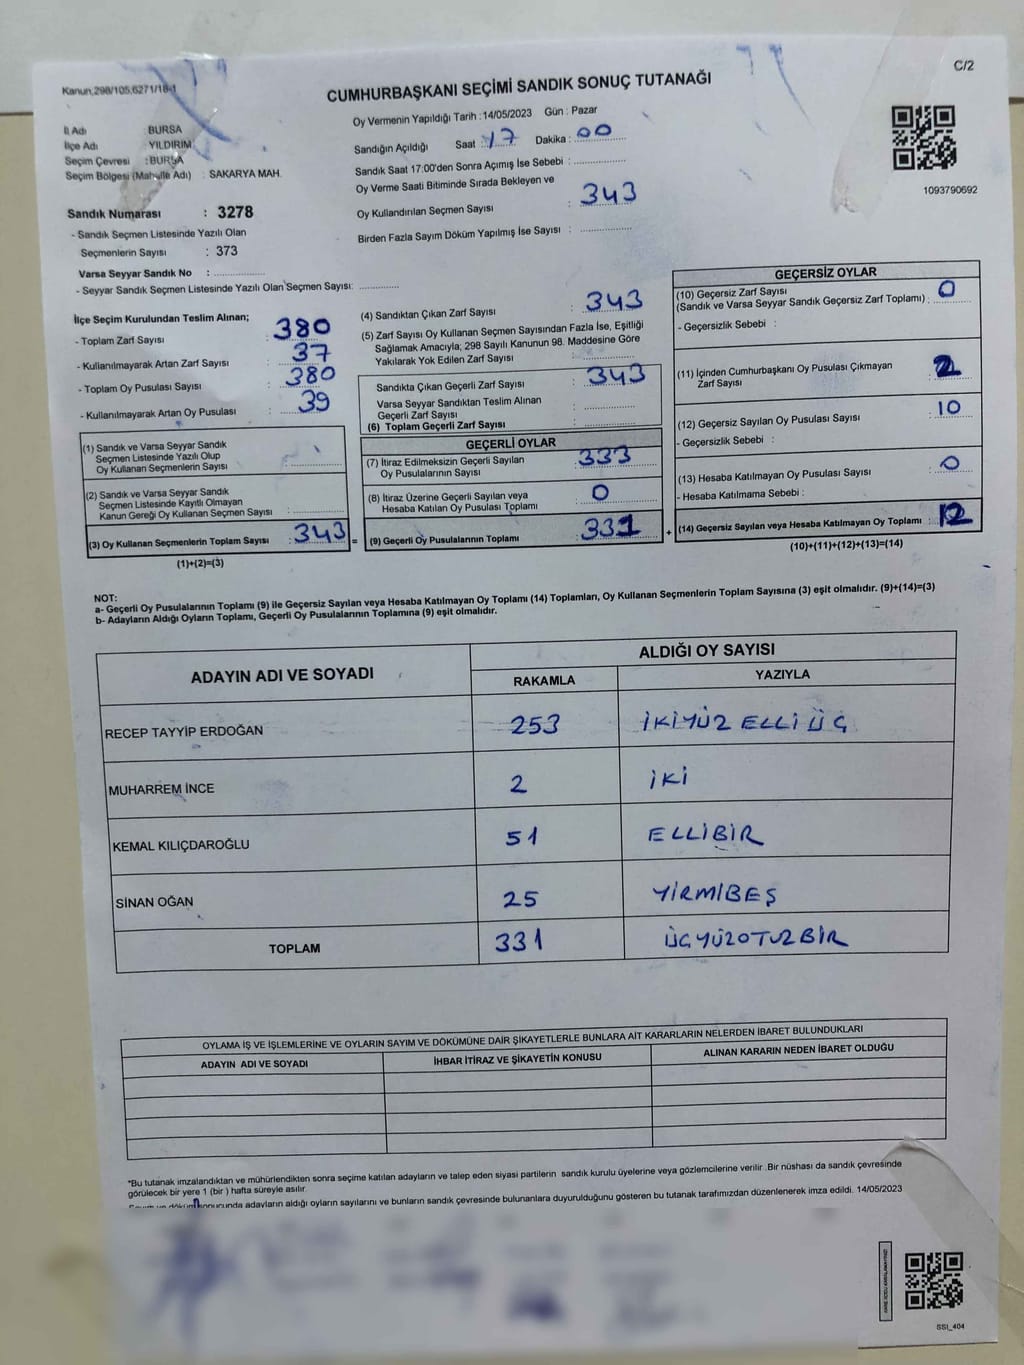 Kanun;298/105,6271/18-1
C/2
CUMHURBAŞKANI SEÇİMİ SANDIK SONUÇ TUTANAĞI
Oy Vermenin Yapıldığı Tarih : 14/05/2023 Gün : Pazar
İl Adı : BURSA
İlçe Adı : YILDIRIM
Seçim Çevresi : BURSA
Seçim Bölgesi (Mahalle Adı) : SAKARYA MAH.
Sandığın Açıldığı Saat : 17 Dakika : 00
Sandık Saat 17:00'den Sonra Açımış İse Sebebi :
Oy Verme Saati Bitiminde Sırada Bekleyen ve
Oy Kullandırılan Seçmen Sayısı : 343
Birden Fazla Sayım Döküm Yapılmış İse Sayısı :
1093790692
Sandık Numarası : 3278
- Sandık Seçmen Listesinde Yazılı Olan
Seçmenlerin Sayısı : 373
Varsa Seyyar Sandık No :
- Seyyar Sandık Seçmen Listesinde Yazılı Olan Seçmen Sayısı:
İlçe Seçim Kurulundan Teslim Alınan;
- Toplam Zarf Sayısı : 380
- Kullanılmayarak Artan Zarf Sayısı : 37
- Toplam Oy Pusulası Sayısı : 380
- Kullanılmayarak Artan Oy Pusulası : 39
(1) Sandık ve Varsa Seyyar Sandık
Seçmen Listesinde Yazılı Olup
Oy Kullanan Seçmenlerin Sayısı :
(2) Sandık ve Varsa Seyyar Sandık
Seçmen Listesinde Kayıtlı Olmayan
Kanun Gereği Oy Kullanan Seçmen Sayısı :
(3) Oy Kullanan Seçmenlerin Toplam Sayısı : 343 =
(1)+(2)=(3)
(4) Sandıktan Çıkan Zarf Sayısı : 343
(5) Zarf Sayısı Oy Kullanan Seçmen Sayısından Fazla İse, Eşitliği
Sağlamak Amacıyla; 298 Sayılı Kanunun 98. Maddesine Göre
Yakılarak Yok Edilen Zarf Sayısı :
Sandıkta Çıkan Geçerli Zarf Sayısı : 343
Varsa Seyyar Sandıktan Teslim Alınan
Geçerli Zarf Sayısı :
(6) Toplam Geçerli Zarf Sayısı :
GEÇERLİ OYLAR
(7) İtiraz Edilmeksizin Geçerli Sayılan
Oy Pusulalarının Sayısı : 333
(8) İtiraz Üzerine Geçerli Sayılan veya
Hesaba Katılan Oy Pusulası Toplamı : 0
(9) Geçerli Oy Pusulalarının Toplamı : 331 +
GEÇERSİZ OYLAR
(10) Geçersiz Zarf Sayısı
(Sandık ve Varsa Seyyar Sandık Geçersiz Zarf Toplamı) : 0
- Geçersizlik Sebebi :
(11) İçinden Cumhurbaşkanı Oy Pusulası Çıkmayan
Zarf Sayısı : 2
(12) Geçersiz Sayılan Oy Pusulası Sayısı : 10
- Geçersizlik Sebebi :
(13) Hesaba Katılmayan Oy Pusulası Sayısı : 0
- Hesaba Katılmama Sebebi :
(14) Geçersiz Sayılan veya Hesaba Katılmayan Oy Toplamı : 12
(10)+(11)+(12)+(13)=(14)
NOT:
a- Geçerli Oy Pusulalarının Toplamı (9) ile Geçersiz Sayılan veya Hesaba Katılmayan Oy Toplamı (14) Toplamları, Oy Kullanan Seçmenlerin Toplam Sayısına (3) eşit olmalıdır. (9)+(14)=(3)
b- Adayların Aldığı Oyların Toplamı, Geçerli Oy Pusulalarının Toplamına (9) eşit olmalıdır.
ADAYIN ADI VE SOYADI ALDIĞI OY SAYISI
RAKAMLA YAZIYLA
RECEP TAYYİP ERDOĞAN 253 İKİYÜZ ELLİ ÜÇ
MUHARREM İNCE 2 İKİ
KEMAL KILIÇDAROĞLU 51 ELLİBİR
SİNAN OĞAN 25 YİRMİBEŞ
TOPLAM 331 ÜÇYÜZOTUZBİR
OYLAMA İŞ VE İŞLEMLERİNE VE OYLARIN SAYIM VE DÖKÜMÜNE DAİR ŞİKAYETLERLE BUNLARA AİT KARARLARIN NELERDEN İBARET BULUNDUKLARI
ADAYIN ADI VE SOYADI İHBAR İTİRAZ VE ŞİKAYETİN KONUSU ALINAN KARARIN NEDEN İBARET OLDUĞU
*Bu tutanak imzalandıktan ve mühürlendikten sonra seçime katılan adayların ve talep eden siyasi partilerin sandık kurulu üyelerine veya gözlemcilerine verilir .Bir nüshası da sandık çevresinde
görülecek bir yere 1 (bir ) hafta süreyle asılır.
Sayım ve döküm sonucunda adayların aldığı oyların sayılarını ve bunların sandık çevresinde bulunanlara duyurulduğunu gösteren bu tutanak tarafımızdan düzenlenerek imza edildi. 14/05/2023
SSI_404